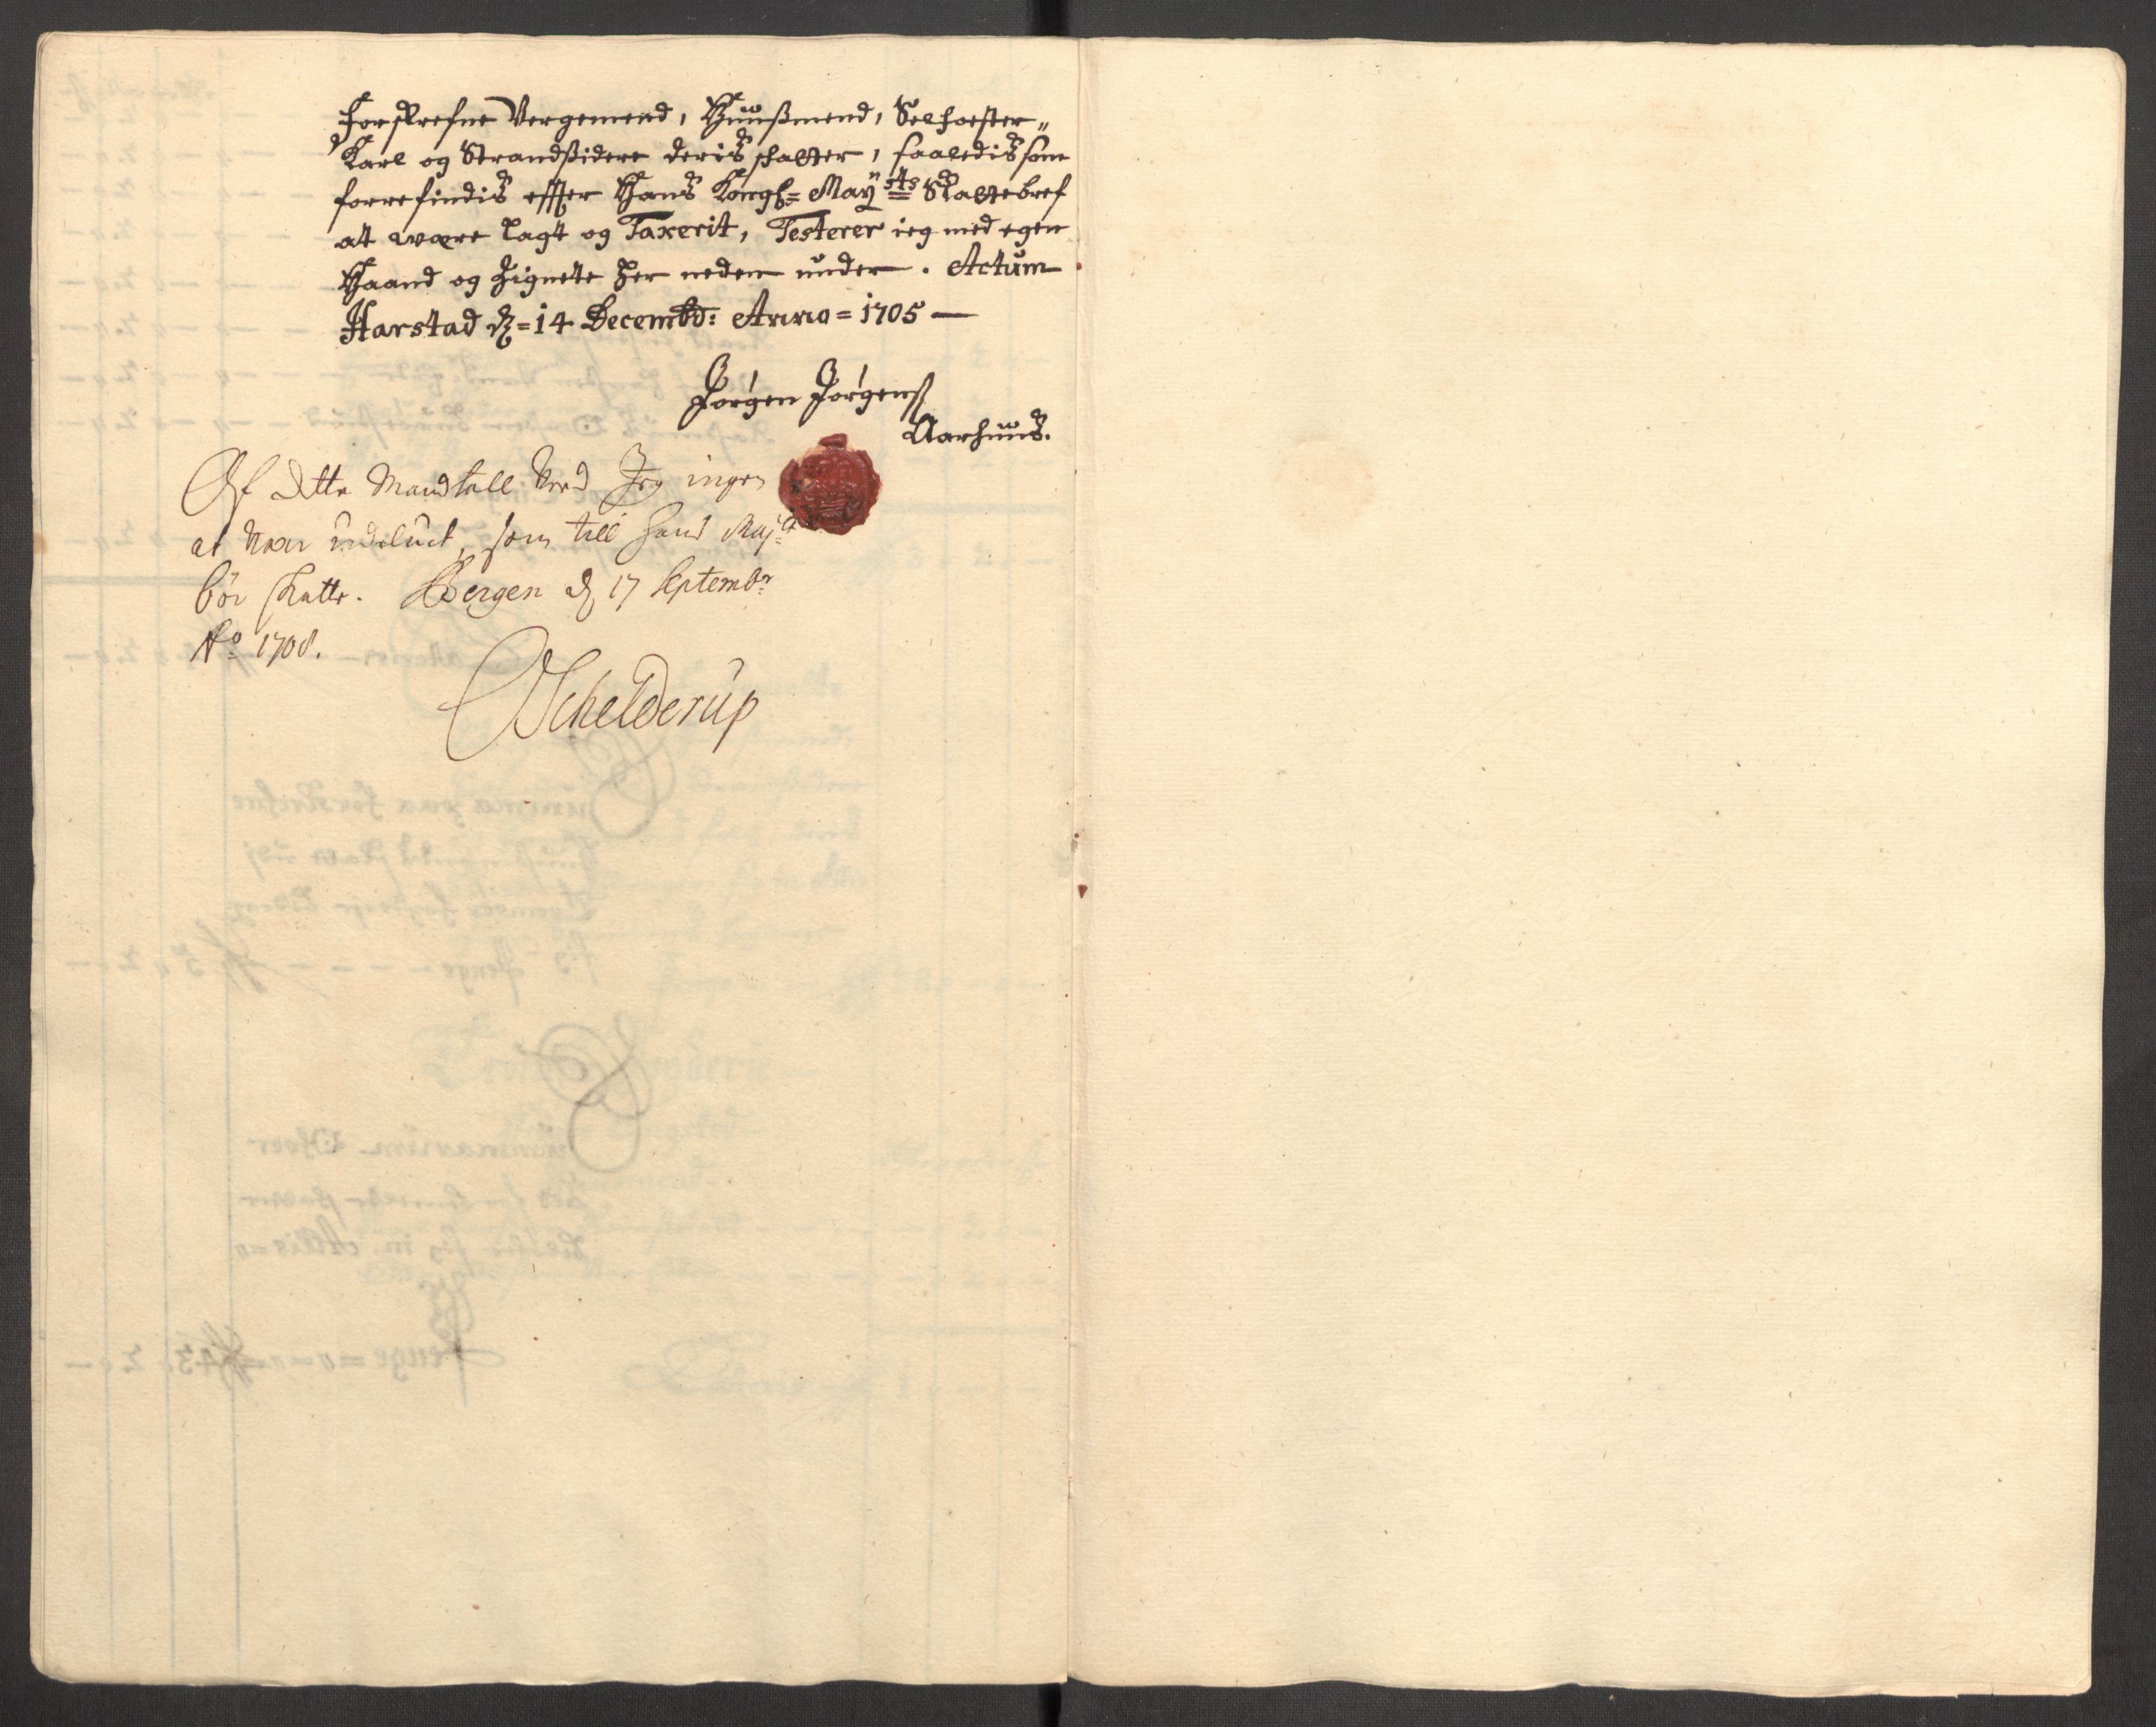 Forskrefne Vergemend, Huußmend, Selfoster„
Karl og Strandßidere deris skatter, saaledis som
forrefindis effter Hans Kongl= Maÿsts Skattebref
at være lagt og Taxerit, Testerer ieg med egen
Haand og Zignete her neden under. Actum
Harstad d= 14 Decembr: Anno = 1705 —
Jørgen Jørgens
Aarhuus.
Af dette Mandtall Veed Jeg ingen
at Være udeluct, som till hans Mayt
bör skatte. Bergen d 17 Septembr
Ao 1708.
Schelderup